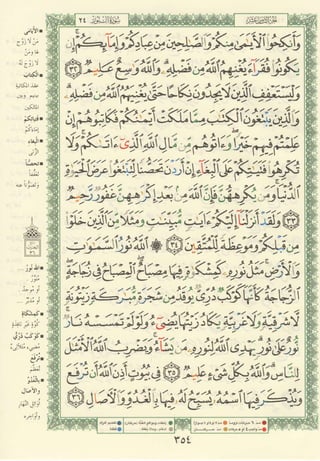 سُورَةُ النُّورِ ٢٤
وَأَنكِحُوا۟ ٱلْأَيَـٰمَىٰ مِنكُمْ وَٱلصَّـٰلِحِينَ مِنْ عِبَادِكُمْ وَإِمَآئِكُمْ إِن
يَكُونُوا۟ فُقَرَآءَ يُغْنِهِمُ ٱللَّهُ مِن فَضْلِهِۦ وَٱللَّهُ وَٰسِعٌ عَلِيمٌ ٣٢
وَلْيَسْتَعْفِفِ ٱلَّذِينَ لَا يَجِدُونَ نِكَاحًا حَتَّىٰ يُغْنِيَهُمُ ٱللَّهُ مِن فَضْلِهِۦ
وَٱلَّذِينَ يَبْتَغُونَ ٱلْكِتَـٰبَ مِمَّا مَلَكَتْ أَيْمَـٰنُكُمْ فَكَاتِبُوهُمْ إِنْ
عَلِمْتُمْ فِيهِمْ خَيْرًا وَءَاتُوهُم مِّن مَّالِ ٱللَّهِ ٱلَّذِىٓ ءَاتَىٰكُمْ وَلَا
تُكْرِهُوا۟ فَتَيَـٰتِكُمْ عَلَى ٱلْبِغَآءِ إِنْ أَرَدْنَ تَحَصُّنًا لِّتَبْتَغُوا۟ عَرَضَ ٱلْحَيَوٰةِ
ٱلدُّنْيَا وَمَن يُكْرِههُّنَّ فَإِنَّ ٱللَّهَ مِنۢ بَعْدِ إِكْرَٰهِهِنَّ غَفُورٌ رَّحِيمٌ
٣٣ وَلَقَدْ أَنزَلْنَآ إِلَيْكُمْ ءَايَـٰتٍ مُّبَيِّنَـٰتٍ وَمَثَلًا مِّنَ ٱلَّذِينَ خَلَوْا۟
مِن قَبْلِكُمْ وَمَوْعِظَةً لِّلْمُتَّقِينَ ٣٤ ۞ ٱللَّهُ نُورُ ٱلسَّمَـٰوَٰتِ
وَٱلْأَرْضِ مَثَلُ نُورِهِۦ كَمِشْكَوٰةٍ فِيهَا مِصْبَاحٌ ٱلْمِصْبَاحُ فِى زُجَاجَةٍ
ٱلزُّجَاجَةُ كَأَنَّهَا كَوْكَبٌ دُرِّىٌّ يُوقَدُ مِن شَجَرَةٍ مُّبَـٰرَكَةٍ زَيْتُونَةٍ
لَّا شَرْقِيَّةٍ وَلَا غَرْبِيَّةٍ يَكَادُ زَيْتُهَا يُضِىٓءُ وَلَوْ لَمْ تَمْسَسْهُ نَارٌ
نُّورٌ عَلَىٰ نُورٍ يَهْدِى ٱللَّهُ لِنُورِهِۦ مَن يَشَآءُ وَيَضْرِبُ ٱللَّهُ ٱلْأَمْثَـٰلَ
لِلنَّاسِ وَٱللَّهُ بِكُلِّ شَىْءٍ عَلِيمٌ ٣٥ فِى بُيُوتٍ أَذِنَ ٱللَّهُ أَن تُرْفَعَ
وَيُذْكَرَ فِيهَا ٱسْمُهُۥ يُسَبِّحُ لَهُۥ فِيهَا بِٱلْغُدُوِّ وَٱلْـَٔاصَالِ ٣٦
٣٥٤